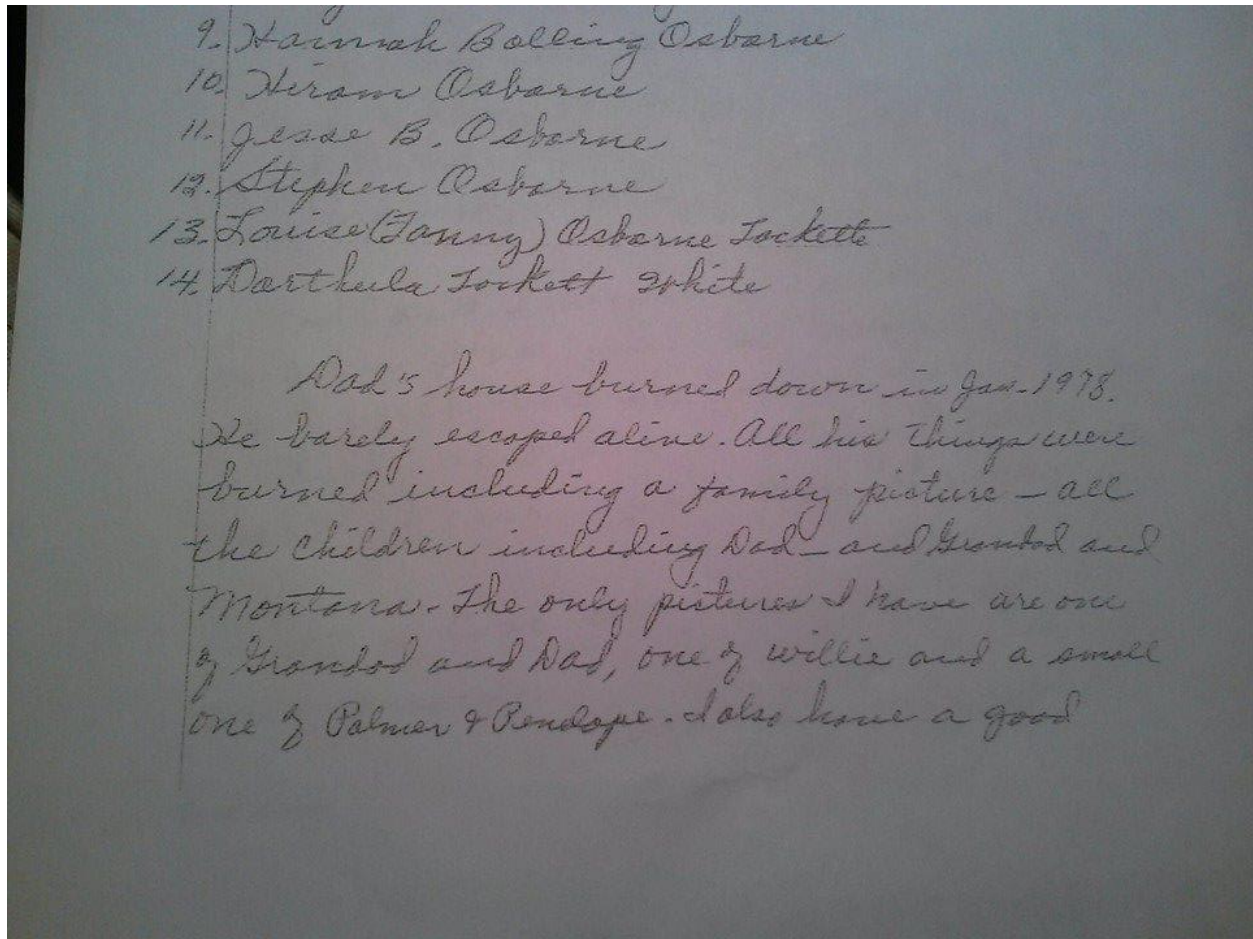 9. Hannah Bolling Osborne
10. Hiram Osborne
11. Jesse B. Osborne
12. Stephen Osborne
13. Louise (Fanny) Osborne Lockett
14. Darthula Lockett White
Dad's house burned down in Jan. 1978.
He barely escaped alive. All his things were
burned including a family picture – all
the children including Dad – and Grandad and
Montana. The only pictures I have are one
of Grandad and Dad, one of Willie and a small
one of Palmer & Penelope. I also have a good